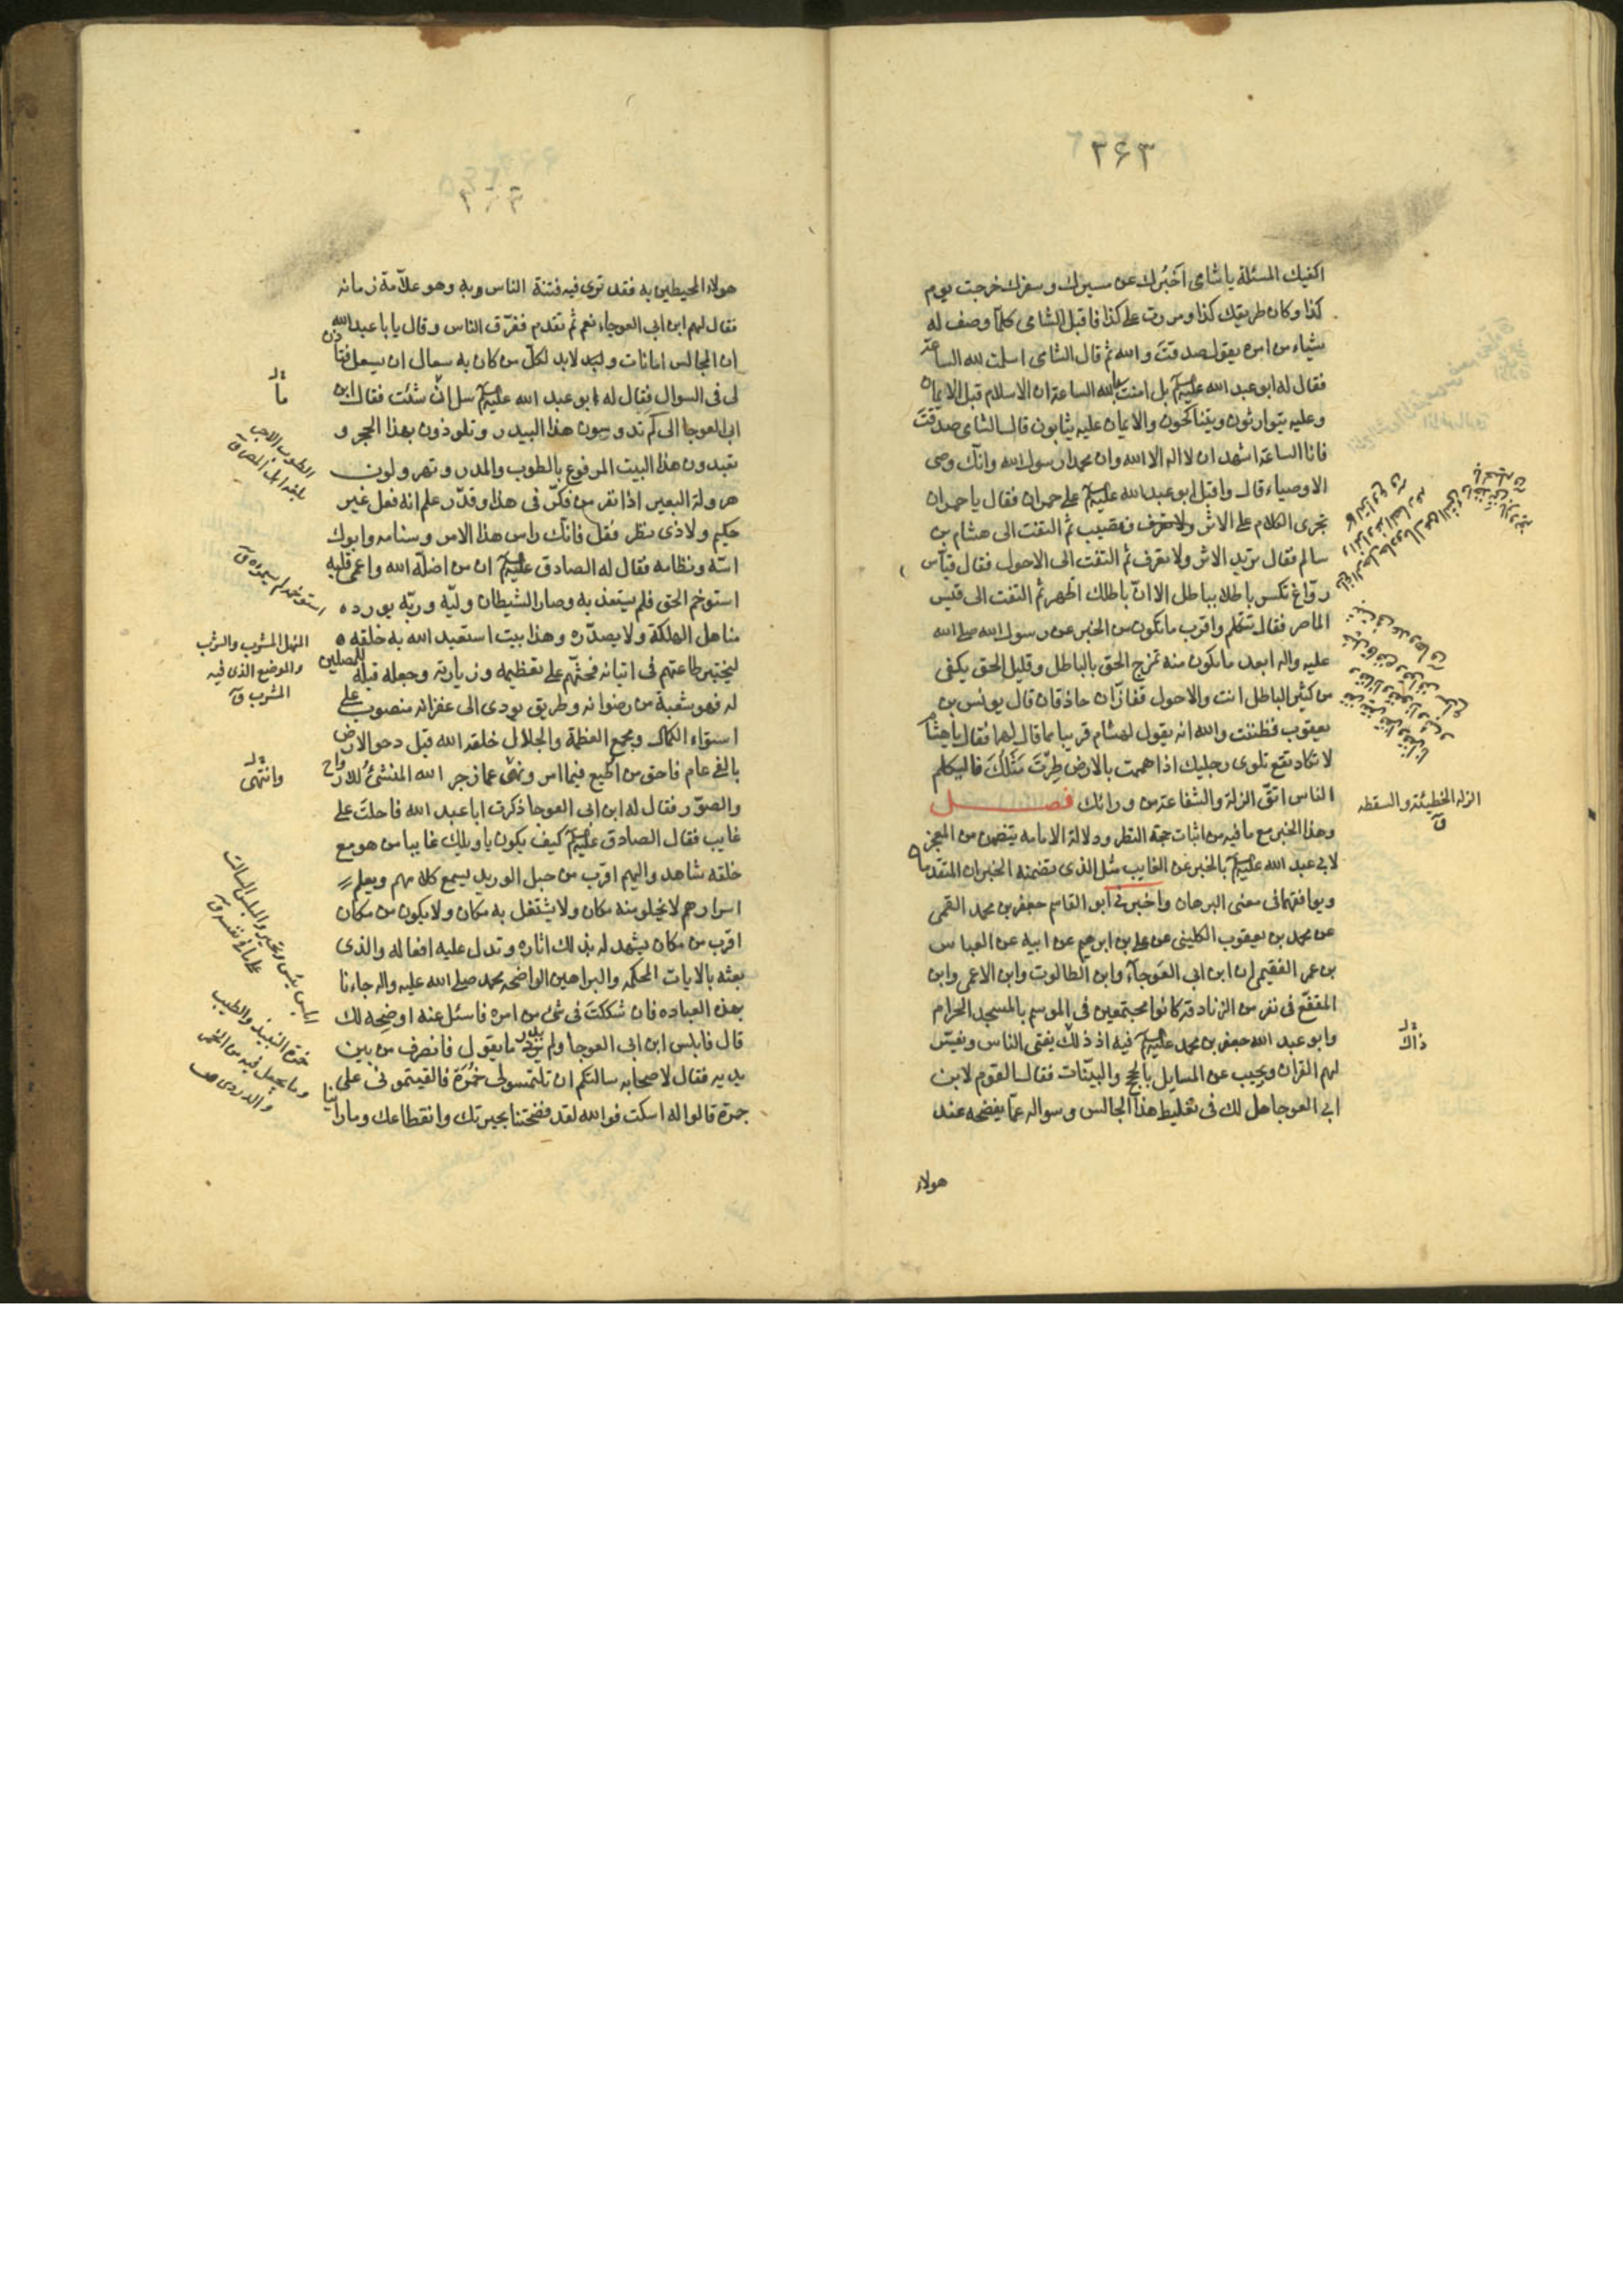 ٢٤٣
اكفيك المسئلة يا شامى اخبرك عن مسيرك وسفرك خرجت يوم
كذا وكان طريقك كذا ومررت على كذا فاقبل الشامى كلما وصف له
شياء من امره يقول صدقت والله ثم قال الشامى اسلمت لله الساعة
فقال له ابو عبد الله عليه السلم بل امنت بالله الساعة ان الاسلام قبل الايمان
وعليه يتوارثون ويتناكحون والايمان عليه يثابون قال الشامى صدقت
فانا الساعة اشهد ان لا اله الا الله وان محمدا رسول الله وانك وصى
الاوصياء قال واقبل ابو عبد الله عليه السلم على حمران فقال يا حمران
تجرى الكلام على الاثر فتصيب ثم التفت الى هشام بن
سالم فقال تريد الاثر ولا تعرف ثم التفت الى الاحول فقال قياس
رواغ تكسر باطلا بباطل الا ان باطلك اظهر ثم التفت الى قيس
الماصر فقال تتكلم واقرب ما تكون من الخبر عن رسول الله صلى الله
عليه واله ابعد ما تكون منه تمزج الحق بالباطل وقليل الحق يكفى
من كثير الباطل انت والاحول قفازان حاذقان قال يونس بن
يعقوب فظننت والله انه يقول لهشام قريبا مما قال لهما فقال يا هشام
لا تكاد تقع تلوى رجليك اذا هممت بالارض طرت مثلك فاليكلم
الناس اتق الزلة والشفاعة من ورائك فصل
وهذا الخبر مع ما فيه من اثبات حجة النظر ودلالة الامامه يتضمن من المعجز
لابى عبد الله عليه السلم بالخبر عن الغايب مثل الذى تضمنه الخبران المتقدمان
ويوافقهما فى معنى البرهان واخبرنى ابو القاسم جعفر بن محمد القمى
عن محمد بن يعقوب الكلينى عن على بن ابرهيم عن ابيه عن العباس
بن عمر الفقيمى ان ابن ابى العوجآء وابن الطالوت وابن الاعمى وابن
المقفع فى نفر من الزنادقة كانوا مجتمعين فى الموسم بالمسجد الحرام
وابو عبد الله جعفر بن محمد عليه السلم فيه اذ ذلك يفتى الناس ويفسر
لهم القران ويجيب عن المسايل بالحجج والبينات فقال القوم لابن
ابى العوجا هل لك فى تغليط هذا الجالس وسواله عما يفضحه عند
هولاء
الزله الخطيئة والسقطه
ق
ذاك
هولاء المحيطين به فقد ترى فيه فتنة الناس وبه وهو علامة زمانه
فقال لهم ابن ابى العوجاء نعم ثم تقدم ففرق الناس وقال يا با عبد الله
ان المجالس امانات ولابد لكل من كان به سعال ان يسعل فتاذن
لى فى السوال فقال له ابو عبد الله عليه السلم سل ان شئت فقال ابن
ابى العوجا الى كم تدوسون هذا البيدر وتلوذون بهذا الحجر و
تعبدون هذا البيت المرفوع بالطوب والمدر وتهرولون
هرولة البعير اذا نفر من فكر فى هذا وقدر علم انه فعل غير
حكيم ولا ذى نظر فقل فانك راس هذا الامر وسنامه وابوك
اسه ونظامه فقال له الصادق عليه السلم ان من اضله الله واعمى قلبه
استوخم الحق فلم يستعذ به وصار الشيطان وليه وربه يورده
مناهل الهلكة ولا يصدره وهذا بيت استعبد الله به خلقه
ليختبر طاعتهم فى اتيانه فحثهم على تعظيمه وزيارته وجعله قبلة للمصلين
له فهو شعبة من رضوانه وطريق يودى الى غفرانه منصوب على
استواء الكمال ومجمع العظمة والجلال خلقه الله قبل دحو الارض
بالفى عام فاحق من اطيع فيما امر ونهى عما زجر الله المنشئ للارواح
والصور فقال له ابن ابى العوجا ذكرت ابا عبد الله فاحلت على
غايب فقال الصادق عليه السلم كيف يكون يا ويلك غايبا من هو مع
خلقه شاهد واليهم اقرب من حبل الوريد يسمع كلامهم ويعلم
اسرارهم لا يخلو منه مكان ولا يشتغل به مكان ولا يكون من مكان
اقرب من مكان يشهد له بذلك اثاره وتدل عليه افعاله والذى
بعثه بالايات المحكمه والبراهين الواضحه محمد صلى الله عليه واله جاءنا
بهذه العباده فان شككت فى شئ من امره فاسئل عنه اوضحه لك
قال فابلس ابن ابى العوجا ولم يدر ما يقول فانصرف من بين
يديه فقال لاصحابه سالتكم ان تلتمسوا لى خمرة فالقيتمونى على
جمرة قالوا له اسكت فوالله لقد فضحتنا بحيرتك وانقطاعك وما راينا
ما
الطوب الاجر
بلغة اهل المصر ق
استوخم لم يستمره ق
المنهل المشرب والشرب
والموضع الذى فيه
المشرب ق
وانتهى
ابلس يئس وتحير والمبلس الساكت
على ما فى نفسه ق
خمرة النبيذ والطيب
وما يجعل فيه من الخمر
والدردى ص